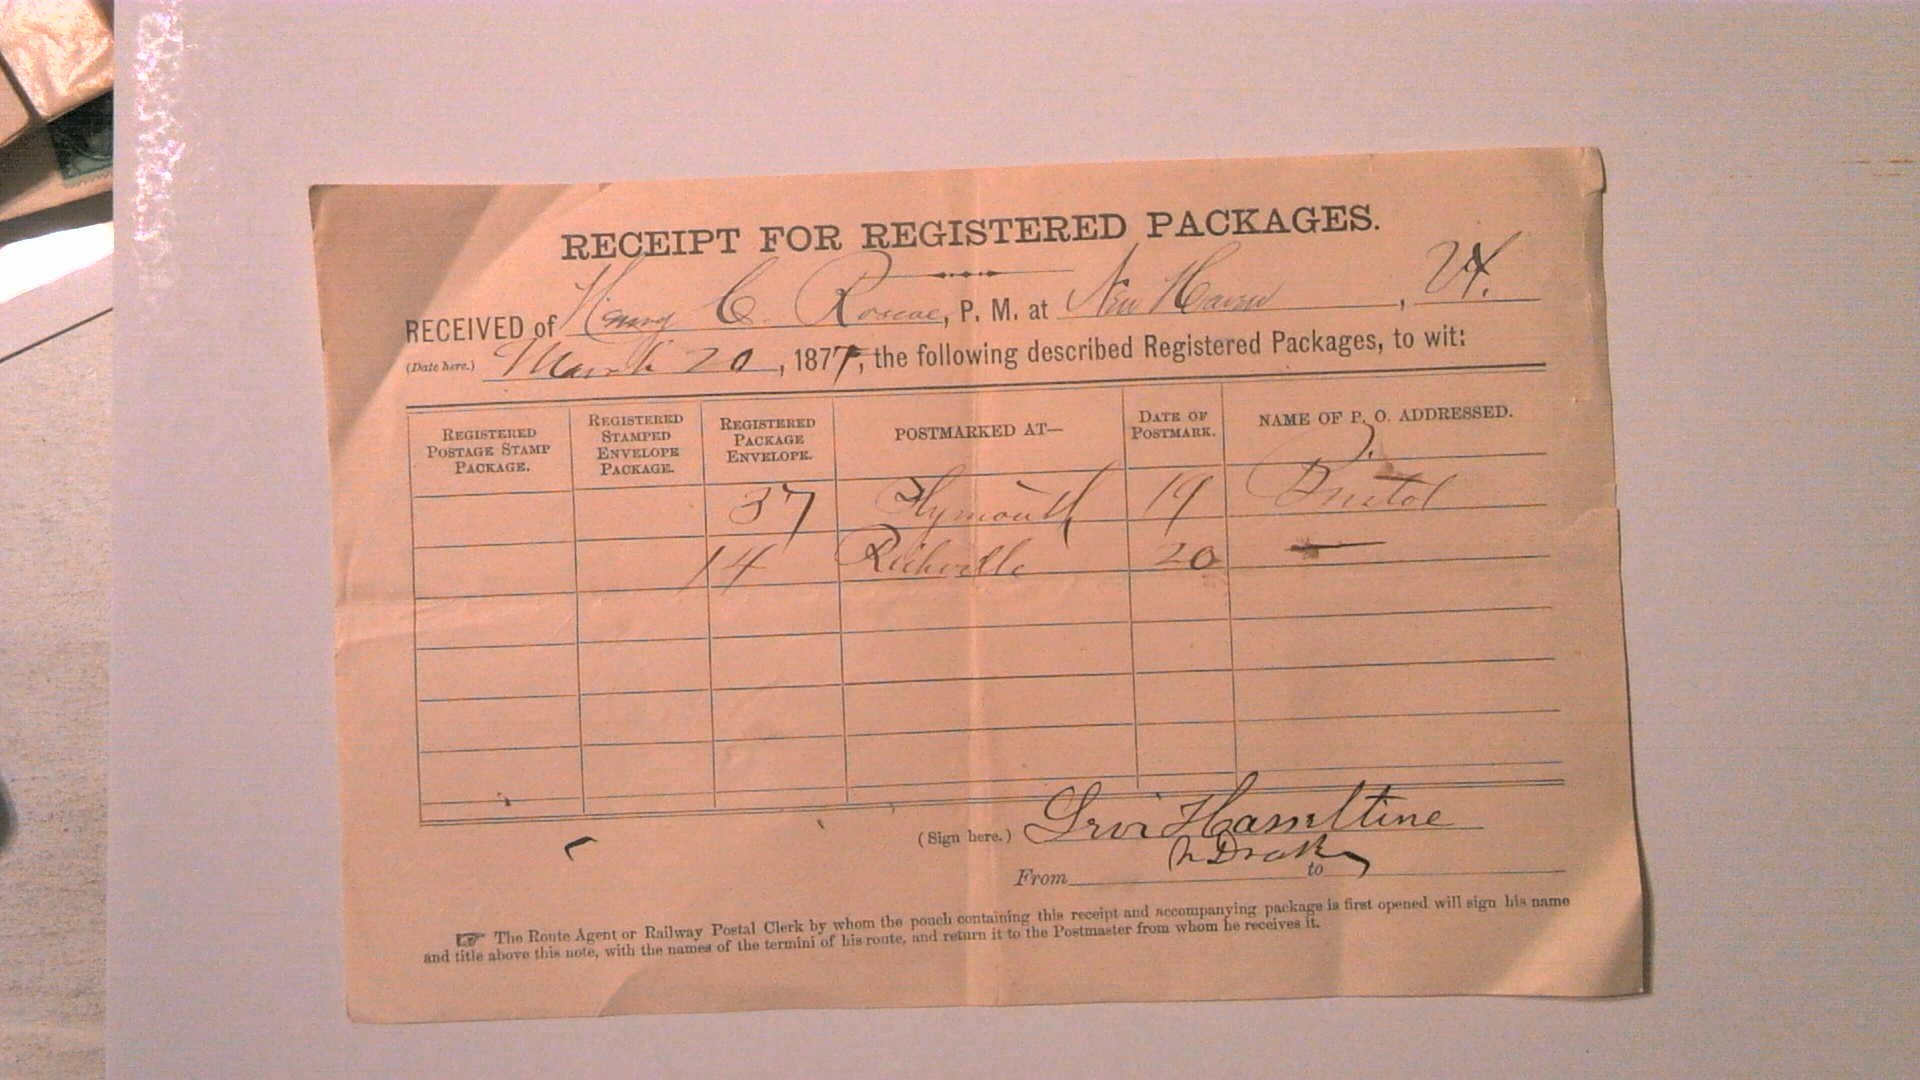 RECEIPT FOR REGISTERED PACKAGES.
RECEIVED of Henry C. Roscoe, P. M. at New Haven, Vt.
(Date here.) March 20, 1877, the following described Registered Packages, to wit:
REGISTERED POSTAGE STAMP PACKAGE. REGISTERED STAMPED ENVELOPE PACKAGE. REGISTERED PACKAGE ENVELOPE. POSTMARKED AT— DATE OF POSTMARK. NAME OF P. O. ADDRESSED.
37 Plymouth 19 Bristol
14 Richville 20 —
(Sign here.) Levi Hasseltine
From to
☞ The Route Agent or Railway Postal Clerk by whom the pouch containing this receipt and accompanying package is first opened will sign his name
and title above this note, with the names of the termini of his route, and return it to the Postmaster from whom he receives it.